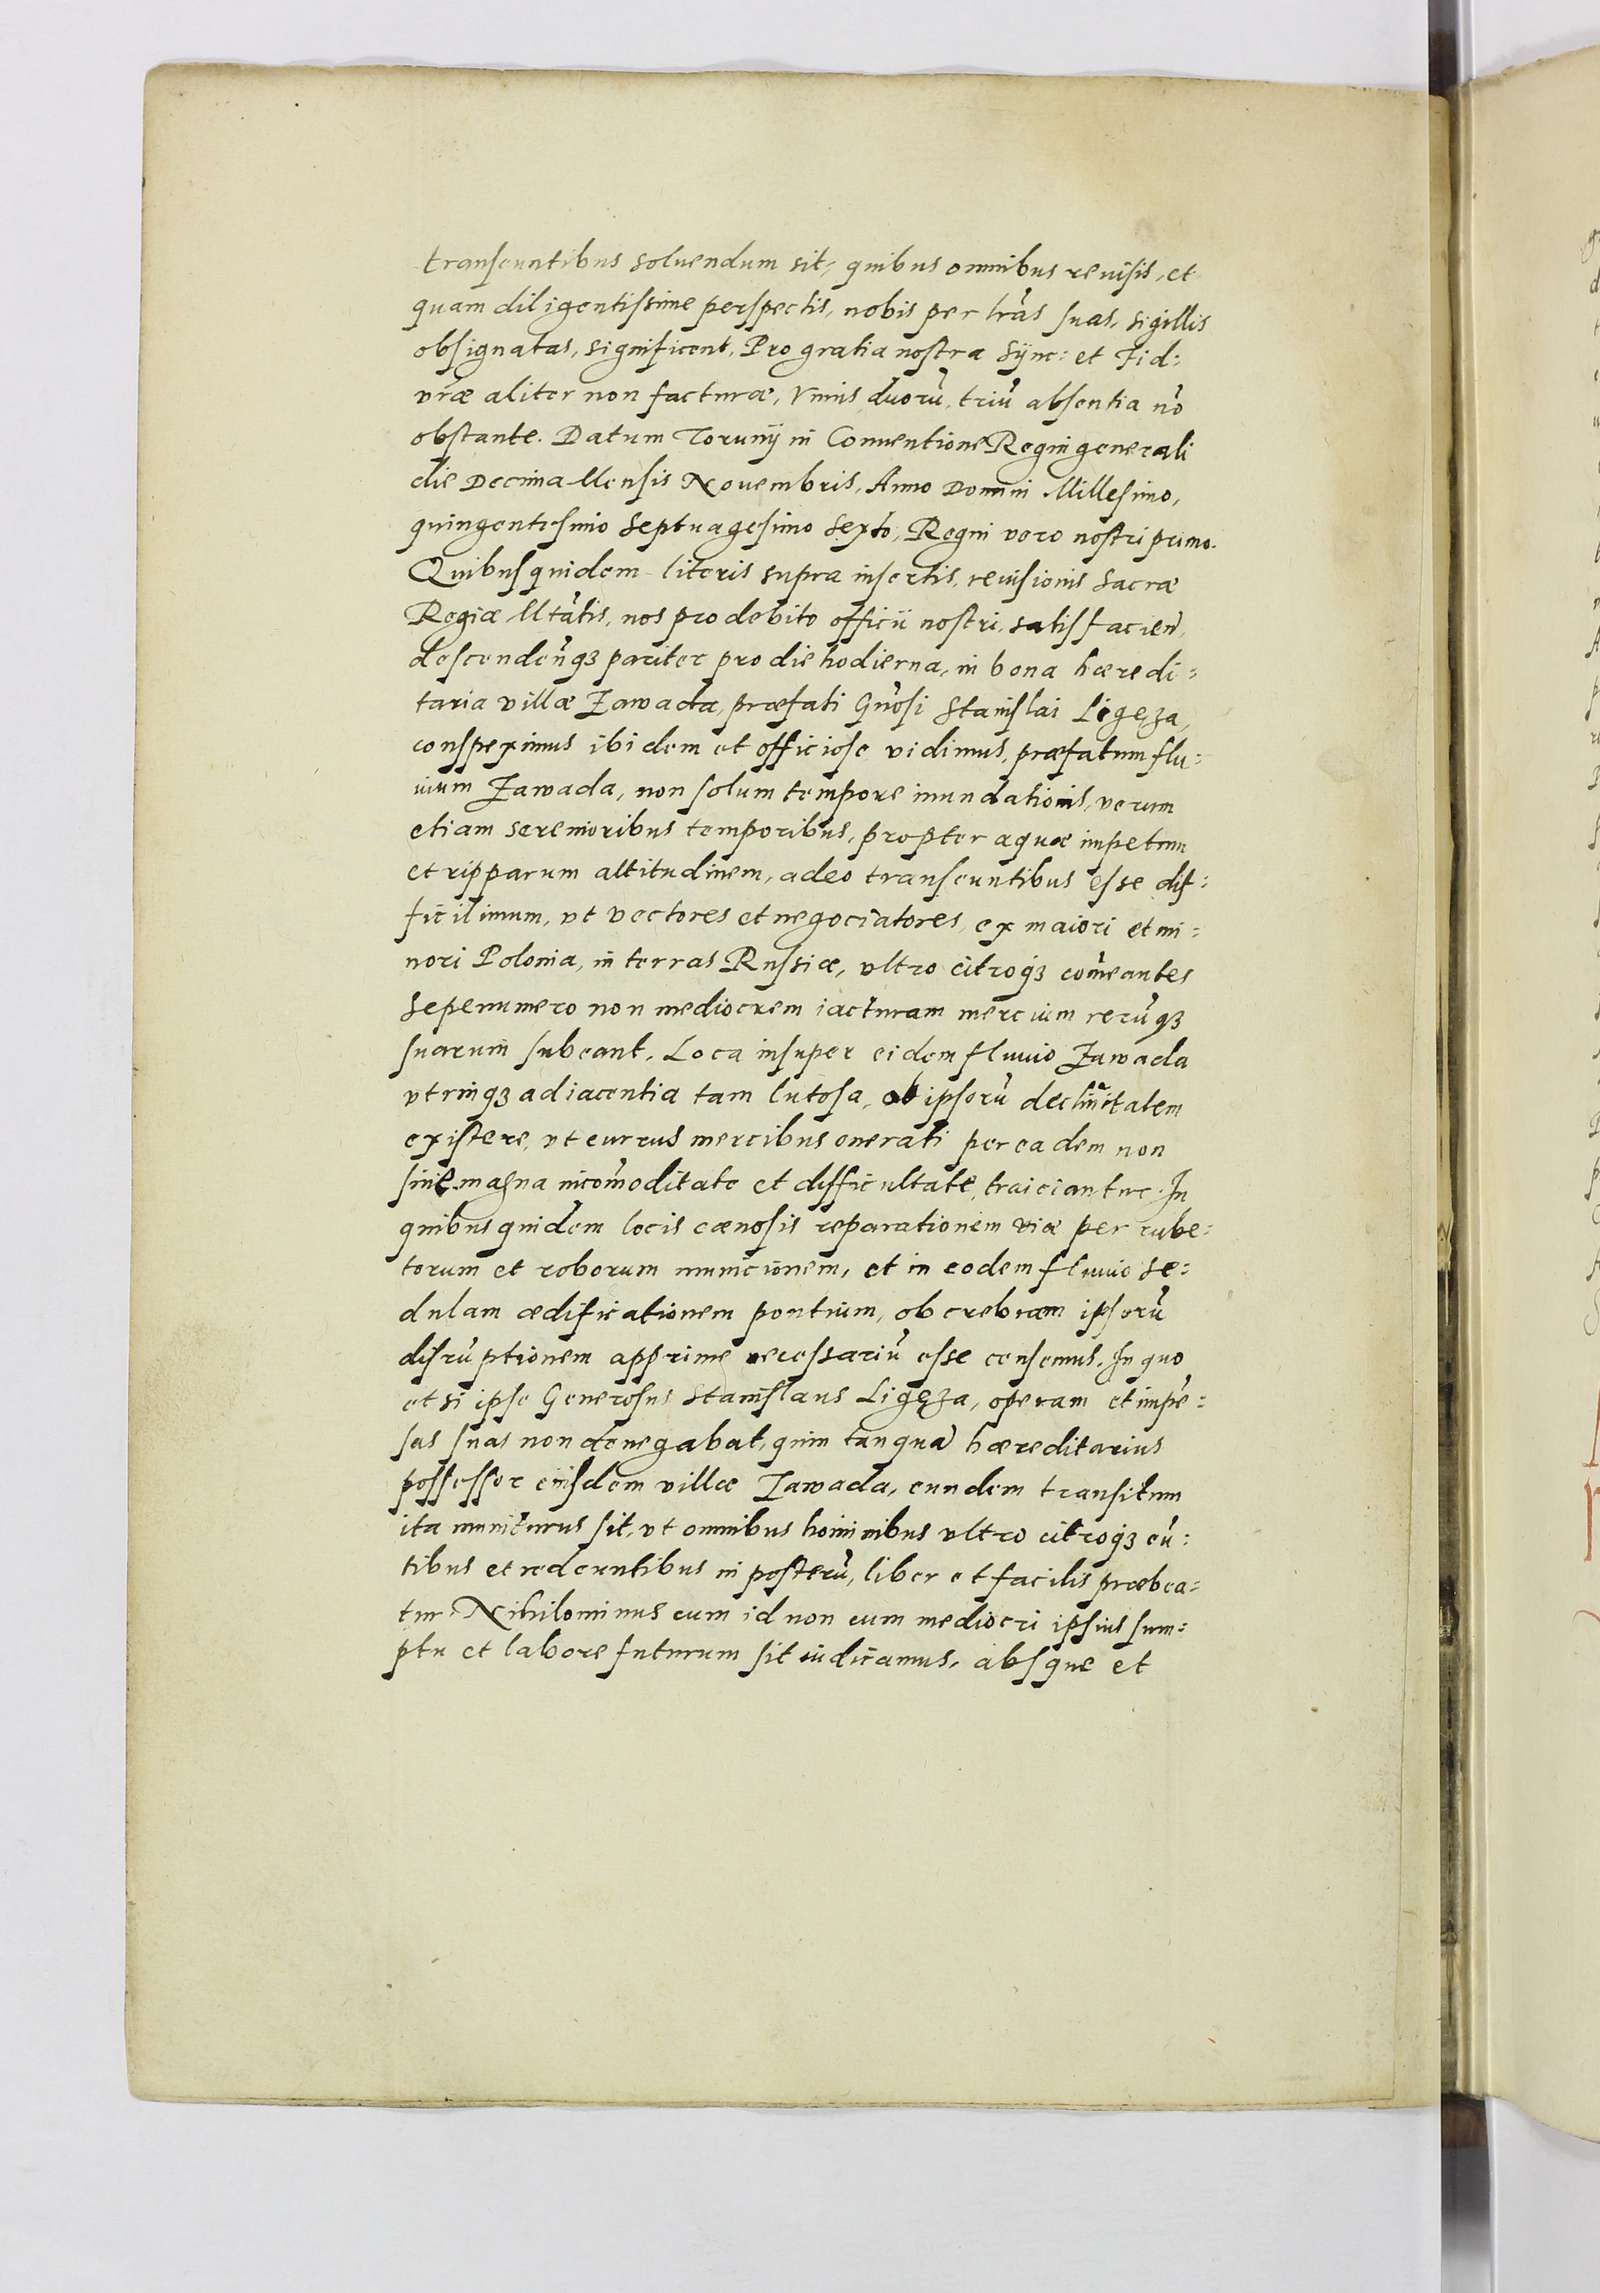 transeuntibus soluendum sit, quibus omnibus reuisis, et
quam diligentissime perspectis, nobis per lrãs suas, sigillis
obsignatas, significent, Pro gratia nostra Sync: et Fid:
vræ aliter non facturæ, Vnius duorũ, triũ absentia nõ
obstante. Datum Torunij in Conuentione Regni generali
die Decima Mensis Nouembris, Anno Domini Millesimo,
quingentesimo Septuagesimo Sexto, Regni vero nostri primo.
Quibus quidem literis supra insertis, reuisionis Sacræ
Regiæ Mtãtis, nos pro debito officii nostri, satisfacień,
descendeńqꝫ pariter pro die hodierna, in bona hæredi:
taria villæ Zawada, præfati Gnõsi Stanislai Ligęza,
conspeximus ibidem et officiose vidimus, præfatum flu:
uium Zawada, non solum tempore inundationis, verum
etiam serenioribus temporibus, propter aquæ impetum
et ripparum altitudinem, adeo transeuntibus esse dif:
ficilimum, vt vectores et negociatores, ex maiori et mi:
nori Polonia, in terras Russiæ, vltro citroqꝫ com̃eantes
Sepenumero non mediocrem iacturam mercium rerũqꝫ
suarum subeant. Loca insuper eidem fluuio Zawada
vtrinqꝫ adiacentia tam lutosa, ob ipsorũ decliuitatem
existere, vt currus mercibus onerati per eadem non
sine magna incom̃oditate et difficultate, traiciantur. In
quibus quidem locis cænosis reparationem viæ per rube:
torum et roborum municionem, et in eodem fluuio se:
dulam ædificationem pontium, ob crebram ipsorũ
disrũptionem apprime necessariũ esse censemus. In quo
et si ipse Generosus Stanislaus Ligęza, operam et impẽ:
sas suas non denegabat, quin tanquã hæreditarius
possessor eiusdem villæ Zawada, eundem transitum
ita muniturus sit, vt omnibus hominibus vltro citroqꝫ eũ:
tibus et redeuntibus in posterũ, liber et facilis præbea:
tur. Nihilominus cum id non cum mediocri ipsius sum:
ptu et labore futurum sit iudicamus, absque et